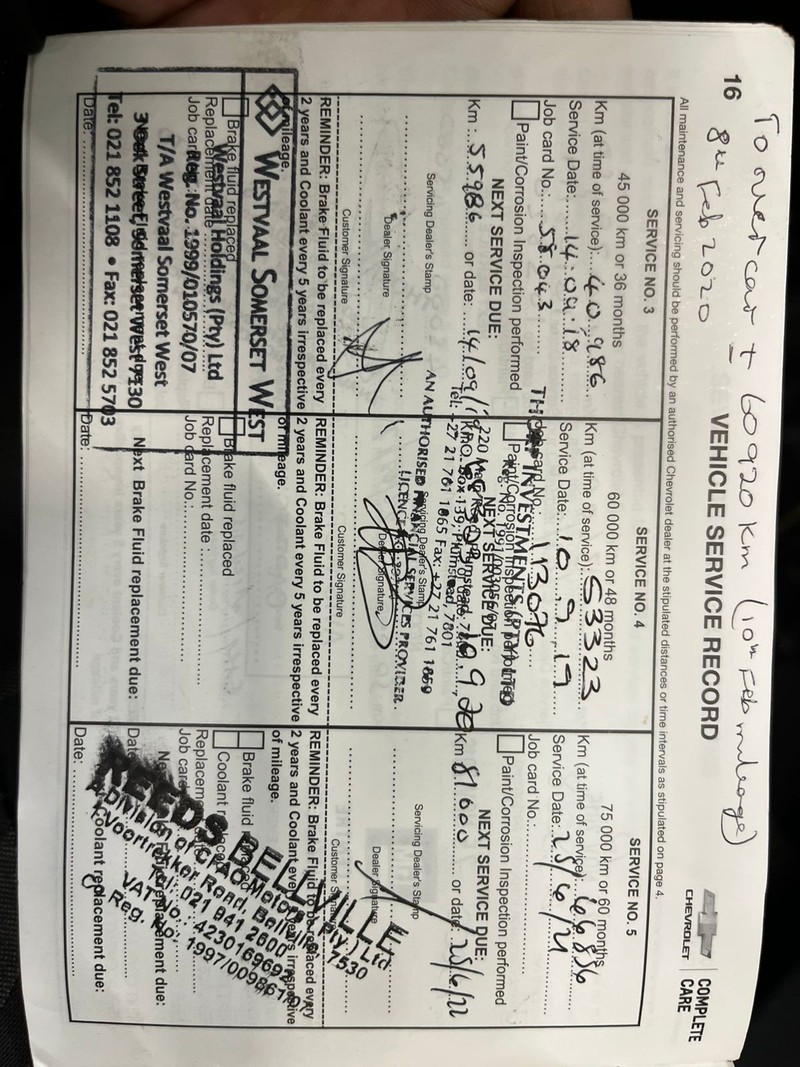 To over car ± 60920 km (10th Feb mileage)
8th Feb 2020
16
VEHICLE SERVICE RECORD
CHEVROLET
COMPLETE
CARE
All maintenance and servicing should be performed by an authorised Chevrolet dealer at the stipulated distances or time intervals as stipulated on page 4.
SERVICE NO. 3
45 000 km or 36 months
Km (at time of service): 40,986
Service Date: 14.09.18
Job card No.: 58043
Paint/Corrosion Inspection performed
NEXT SERVICE DUE:
Km : 55986 or date: 14/09/
Servicing Dealer's Stamp
Dealer Signature
Customer Signature
REMINDER: Brake Fluid to be replaced every
2 years and Coolant every 5 years irrespective
of mileage.
WESTVAAL SOMERSET WEST
Brake fluid replaced
Westvaal Holdings (Pty) Ltd
Replacement date
Reg. No. 1999/010570/07
Job card
T/A Westvaal Somerset West
Tel: 021 852 1108 • Fax: 021 852 5703
Date:
SERVICE NO. 4
60 000 km or 48 months
Km (at time of service): 53323
Service Date: 10.9.19
Job card No. 113096
INVESTMENTS (PTY) LTD
Paint/Corrosion Inspection performed
NEXT SERVICE DUE:
Tel: +27 21 761 1865 Fax: +27 21 761 1859
AN AUTHORISED FINANCIAL SERVICES PROVIDER.
Servicing Dealer's Stamp
Dealer Signature
Customer Signature
REMINDER: Brake Fluid to be replaced every
2 years and Coolant every 5 years irrespective
of mileage.
Brake fluid replaced
Replacement date :
Job card No.:
Next Brake Fluid replacement due:
Date:
SERVICE NO. 5
75 000 km or 60 months
Km (at time of service): 66836
Service Date: 25/6/21
Job card No.:
Paint/Corrosion Inspection performed
NEXT SERVICE DUE:
Km 81600 or date: 25/6/22
Servicing Dealer's Stamp
Dealer Signature
Customer
REMINDER: Brake Fluid to be replaced every
2 years and Coolant every 5 years irrespective
of mileage.
Brake fluid
Coolant
Replacem
Job card
REEDS BELLVILLE
A Division of CFAO Motors (Pty) Ltd
Voortrekker Road, Bellville 7530
Tel: 021 941 2600
VAT No.: 4230169692
Reg. No: 1997/009861/07
Coolant replacement due:
Date: